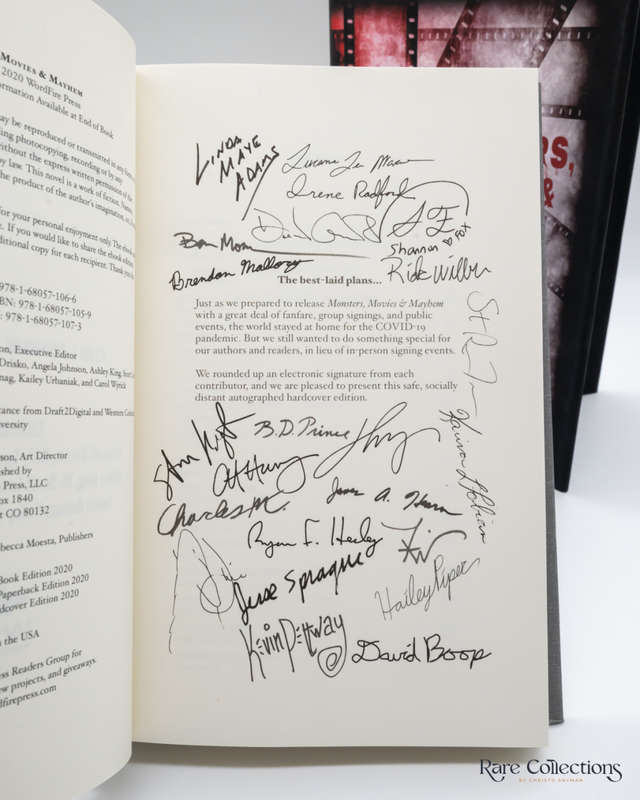 MOVIES & MAYHEM
2020 WordFire Press
ormation Available at End of Book
may be reproduced or transmitted in any form
ing photocopying, recording or by any
without the express written permission of the
by law. This novel is a work of fiction.
the product of the author's imagination,
for your personal enjoyment only. The
t. If you would like to share the ebook
ditional copy for each recipient. Thank you
978-1-68057-106-6
BN: 978-1-68057-105-9
978-1-68057-107-3
on, Executive Editor
Drisko, Angela Johnson, Ashley King,
Kailey Urbaniak, and Carol Wyrick
tance from Draft2Digital and Western
iversity
son, Art Director
lished by
Press, LLC
ox 1840
t CO 80132
becca Moesta, Publishers
Book Edition 2020
Paperback Edition 2020
dcover Edition 2020
n the USA
ss Readers Group for
ew projects, and giveaways.
dfirepress.com
LINDA
MAYE
ADAMS
Irene Radford
Shannon Fox
Brendan Mallory
Rick Wilber
The best-laid plans...
Just as we prepared to release Monsters, Movies & Mayhem
with a great deal of fanfare, group signings, and public
events, the world stayed at home for the COVID-19
pandemic. But we still wanted to do something special for
our authors and readers, in lieu of in-person signing events.
We rounded up an electronic signature from each
contributor, and we are pleased to present this safe, socially
distant autographed hardcover edition.
B.D. Prince
Charles M.
A.
Ryan F. Healey
Jesse Sprague
Hailey Piper
Kevin Pettway
David Boop
RS,
&
Rare Collections
BY CHRISTO SNYMAN